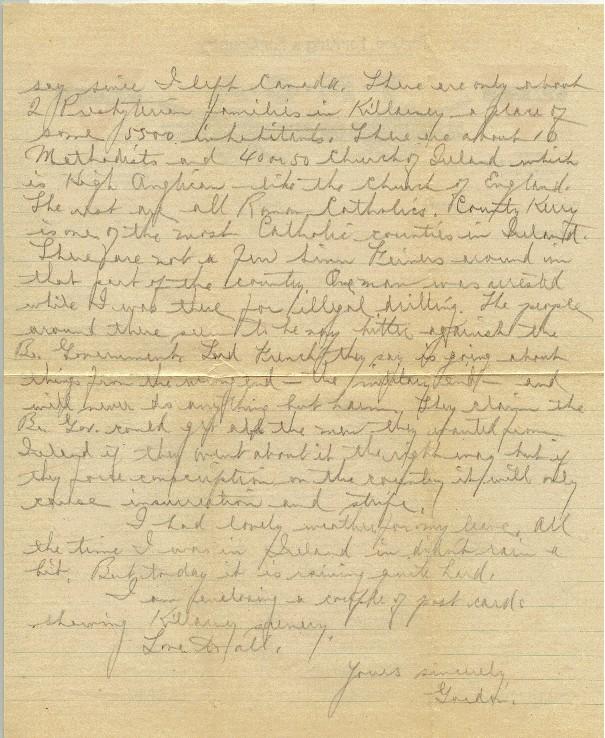 say since I left Canada. There are only about
2 Presbyterian families in Killarney a place of
some 5500 inhabitants. There are about 10
Methodists and 40 or 50 Church of Ireland which
is High Anglican like the Church of England.
The rest are all Roman Catholics. County Kerry
is one of the most Catholic counties in Ireland.
There are not a few Sinn Feiners around in
that part of the country. One man was arrested
while I was there for illegal drilling. The people
around there seem to be very bitter against the
Br. Government. Lord French they say is going about
things from the wrong end — the military end — and
will never do anything but harm. They claim the
Br. Gov. could get all the men they wanted from
Ireland if they went about it the right way but if
they force conscription on the country it will only
cause insurrection and strife.
I had lovely weather for my leave. All
the time I was in Ireland it didn't rain a
bit. But to-day it is raining quite hard.
I am enclosing a couple of post cards
showing Killarney scenery.
Love to all.
Yours sincerely
Gordon.